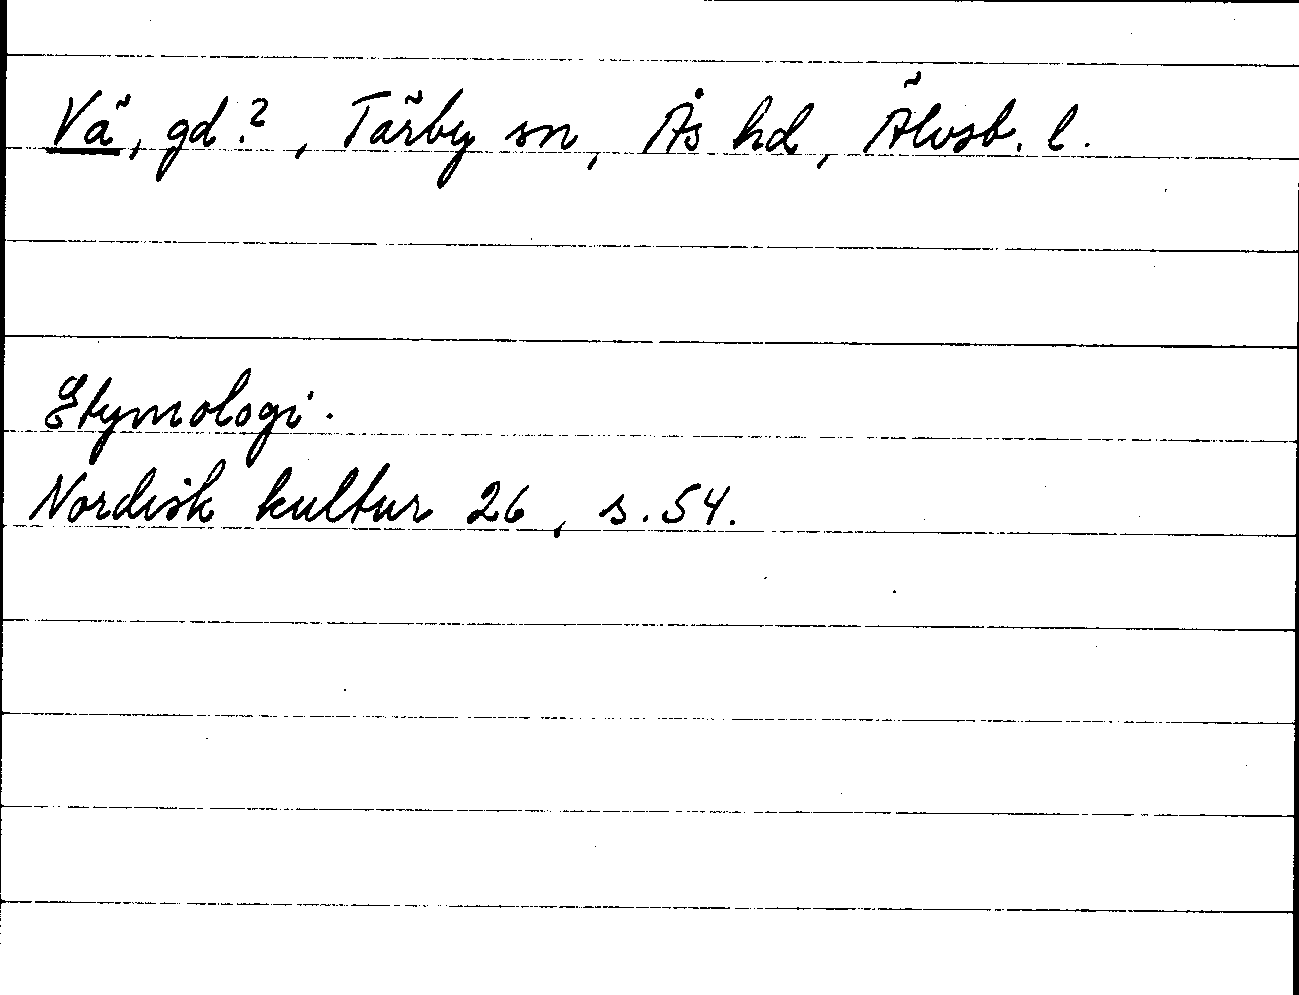 Vä, gd?, Tärby sn, Ås hd, Älvsb. l.
Etymologi.
Nordisk kultur 26, s. 54.